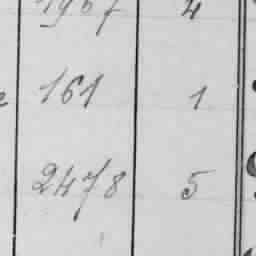 4
161 1
2478 5